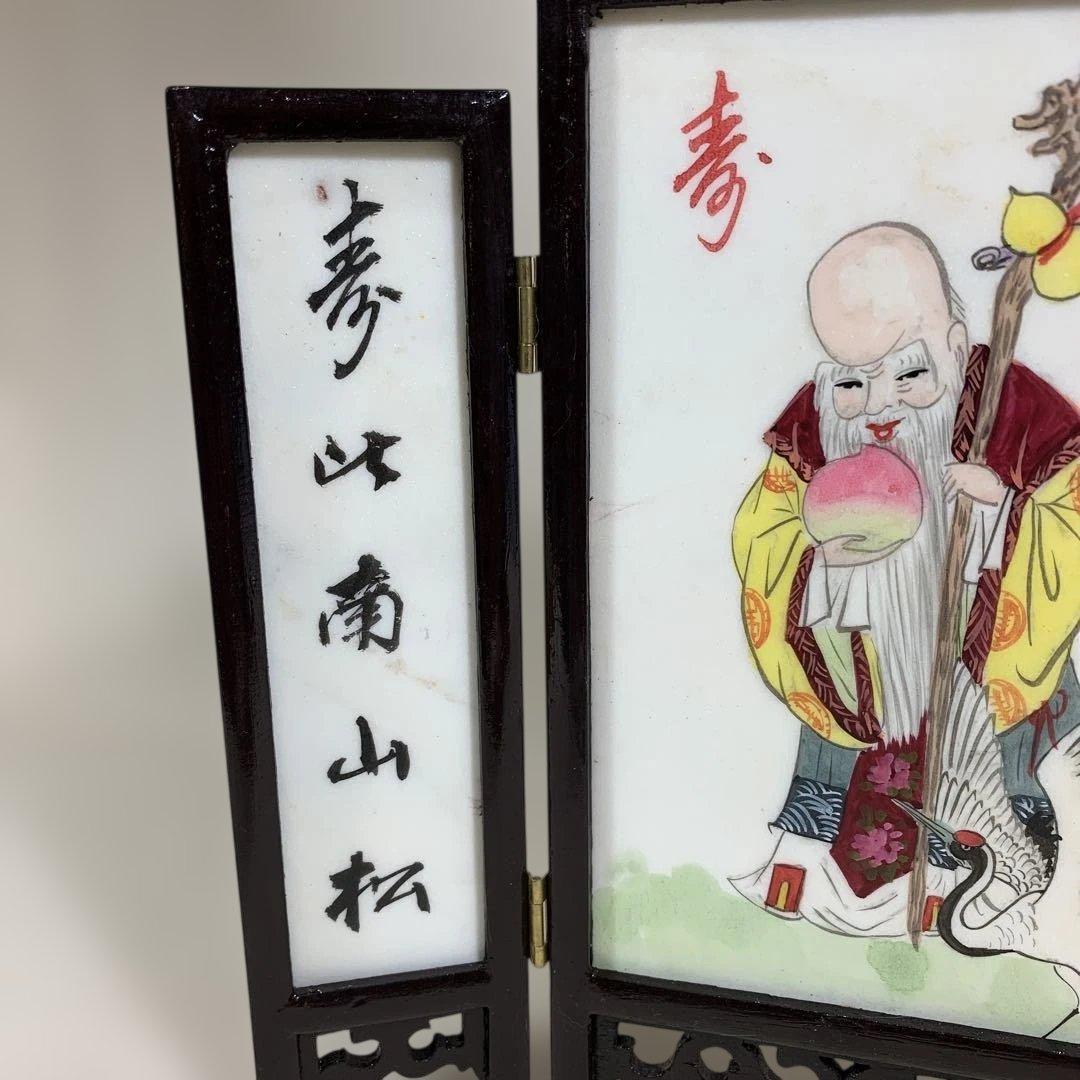 寿比南山松
寿